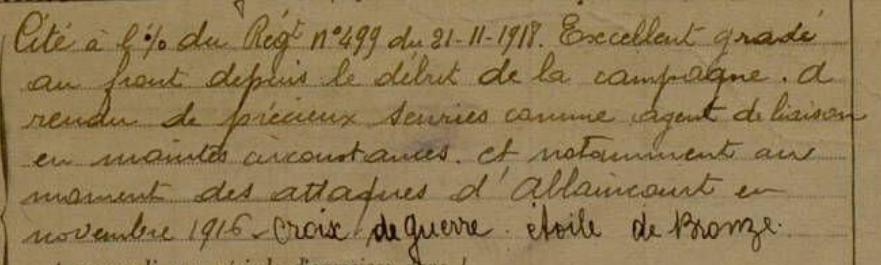 Cité à l'% du Régt n°499 du 21-11-1918. Excellent gradé
au front depuis le début de la campagne. a
rendu de précieux services comme agent de liaison
en maintes circonstances. et notamment au
moment des attaques d'Ablaincourt en
novembre 1916 - Croix de guerre. étoile de Bronze.